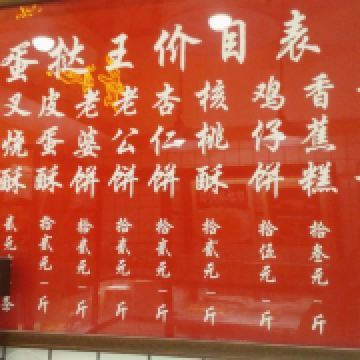 蛋挞王价目表
叉烧酥
贰元
皮蛋酥
拾贰元一斤
老婆饼
拾贰元一斤
老公饼
拾贰元一斤
杏仁饼
拾贰元一斤
核桃酥
拾贰元一斤
鸡仔饼
拾伍元一斤
香蕉糕
拾叁元一斤